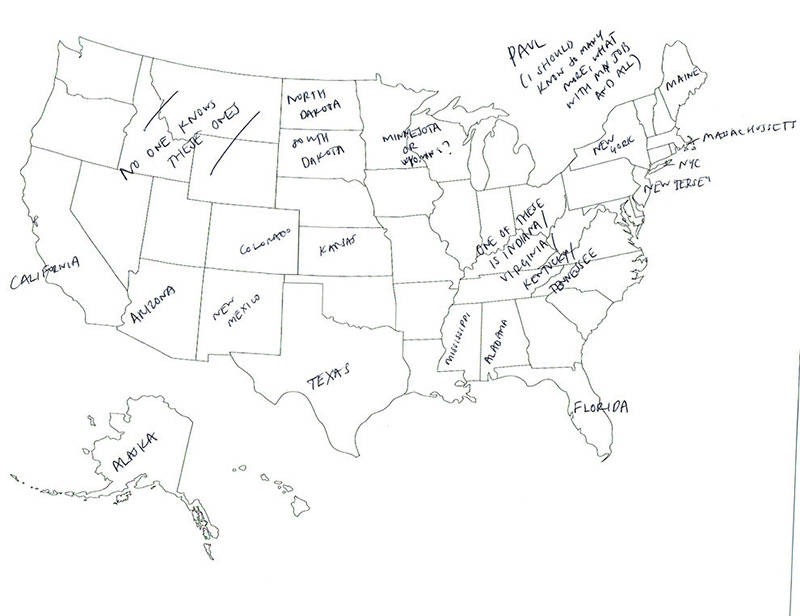 PAUL
(I SHOULD
KNOW SO MANY
MORE, WHAT
WITH MY JOB
AND ALL)
MAINE
NORTH
DAKOTA
SOUTH
DAKOTA
MINNESOTA
OR
WYOMING?
NO ONE KNOWS
THESE ONES
NEW
YORK
MASSACHUSETTS
NYC
NEW JERSEY
ONE OF THESE
IS INDIANA/
VIRGINIA/
KENTUCKY/
TENNESSEE
COLORADO
KANSAS
CALIFORNIA
ARIZONA
NEW
MEXICO
MISSISSIPPI
ALABAMA
TEXAS
FLORIDA
ALASKA